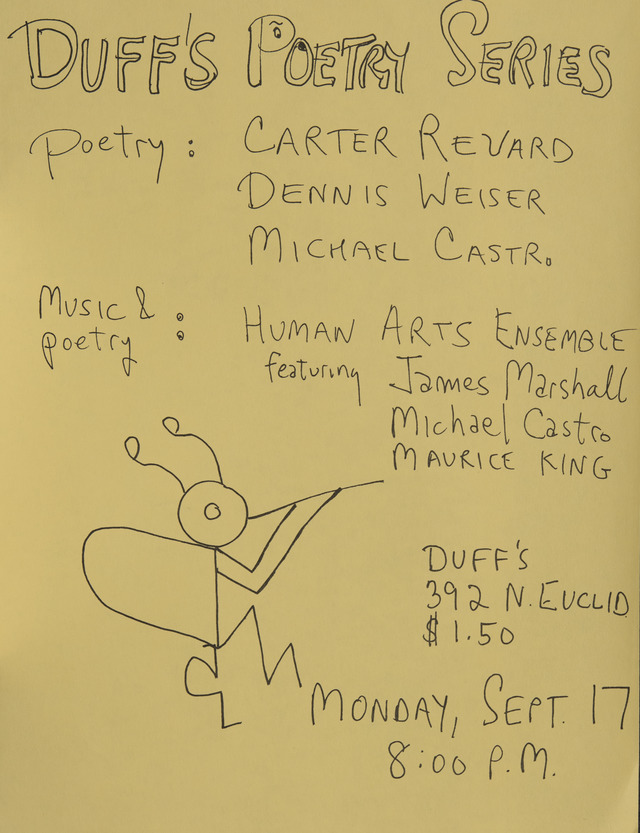 DUFF'S POETRY SERIES
Poetry : CARTER REVARD
DENNIS WEISER
MICHAEL CASTRO
Music & poetry : HUMAN ARTS ENSEMBLE
featuring James Marshall
Michael Castro
MAURICE KING
DUFF'S
392 N. EUCLID
$1.50
MONDAY, SEPT. 17
8:00 P.M.